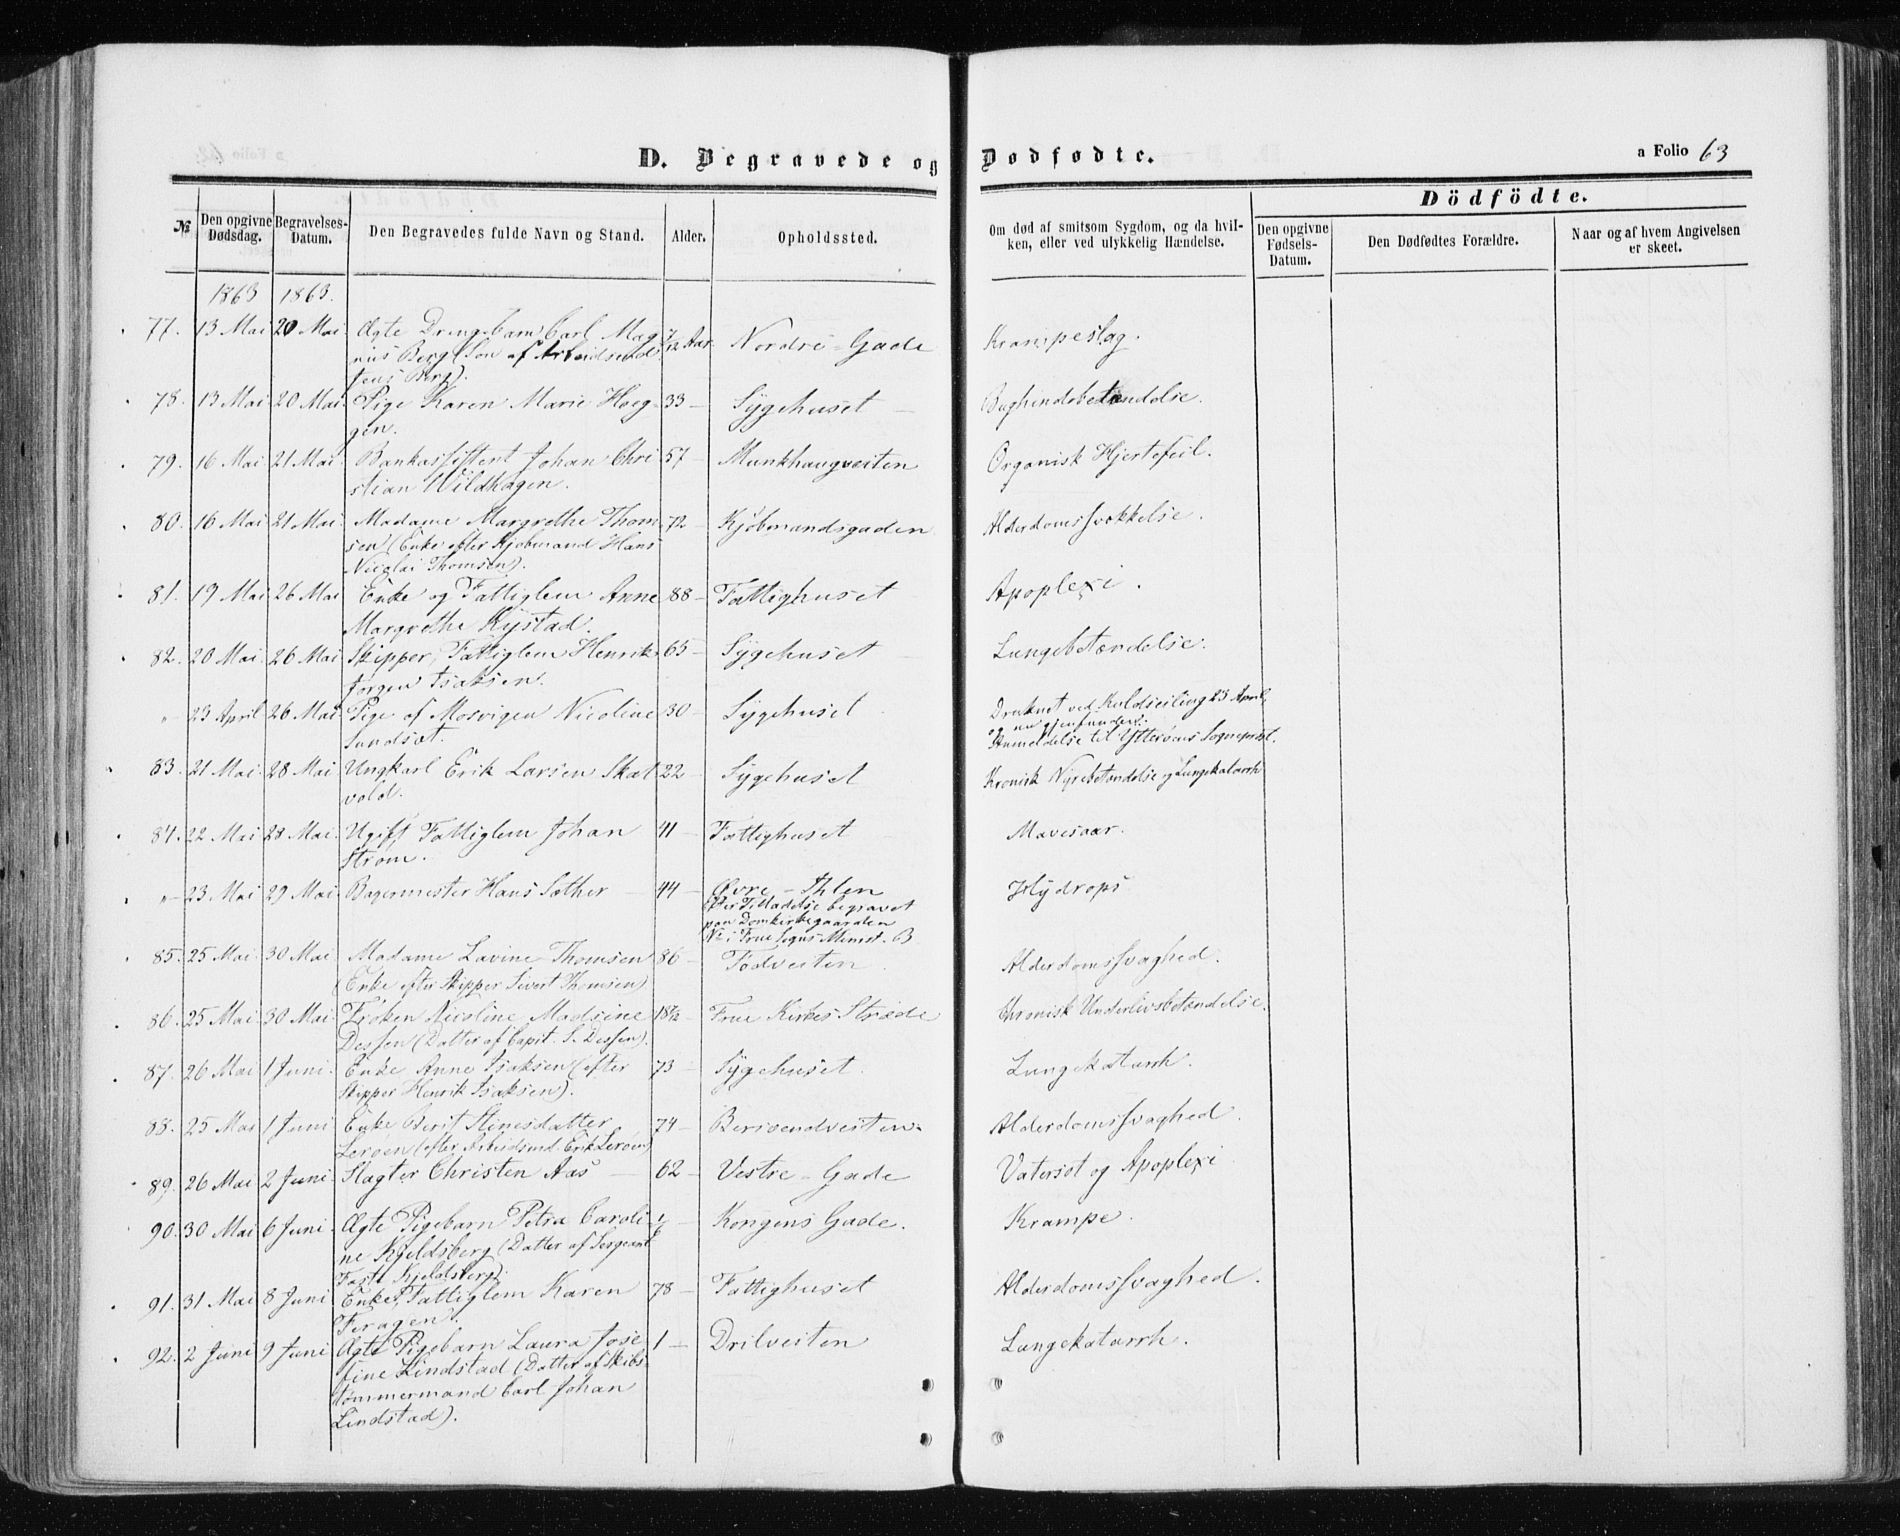 D. Begravede og Dødfødte.
a Folio 63
Dödfödte.
№
Den opgivne Dødsdag.
Begravelses-Datum.
Den Begravedes fulde Navn og Stand.
Alder.
Opholdssted.
Om død af smitsom Sygdom, og da hvil-
ken, eller ved ulykkelig Hændelse.
Den opgivne Fødsels-Datum.
Den Dødfødtes Forældre.
Naar og af hvem Angivelsen er skeet.
1863 1863.
77. 13 Mai 20 Mai Ægte Drengebarn Carl Mag- 7/12 Aar Nordre-Gade Krampeslag.
nus Berg (Søn af Arbeidsmd
Jens Berg).
78. 13 Mai 20 Mai. Pige Karen Marie Hoeg- 33 – Sygehuset – Bughindebetændelse.
gen.
79. 16 Mai 21 Mai. Bankassistent Johan Chri 57 – Munkhaugveiten Organisk Hjertefeil.
stian Wildhagen.
80. 16 Mai 21 Mai. Madame Margrethe Thom 72 – Kjøbmandsgaden Alderdomssvækkelse.
sen (Enke efter Kjøbmand Hans
Nicolai Thomsen).
81. 19 Mai 26 Mai Enke og Fattiglem Anne 88 – Fattighuset – Apoplexi.
Margrethe Rystad.
82. 20 Mai 26 Mai Skipper, Fattiglem Henrik 65 – Sygehuset – Lungebetændelse.
Jørgen Isaksen.
" 23 April 26 Mai Pige af Mosvigen Nicoline 30 – Sygehuset Druknet ved Kuldseiling 23 April,
Sundsæt. og nu gjenfunden.
Anmeldelse til Ytterøens Sognepræst.
83. 21 Mai 28 Mai Ungkarl Erik Larsen Skat 22 – Sygehuset Kronisk Nyrebetændelse og Lungekatarrh
vold.
84. 22 Mai 28 Mai. Ugift Fattiglem Johan 41 – Fattighuset – Mavesaar.
Strøm.
" 23 Mai 29 Mai Bagermester Hans Sæther – 44 – Øvre – Ihlen Hydrops
Efter Tilladelse begravet
paa Domkirkegaarden
No i Frue Sogns Minist. B
85. 25 Mai 30 Mai Madame Lavine Thomsen 86 – Fødveiten. Alderdomssvaghed.
(Enke efter Skipper Sivert Thomsen)
86. 25 Mai 30 Mai. Frøken Nicoline Madsine 18½ Frue Kirkes Stræde Chronisk Underlivsbetændelse.
Dessen (Datter af Capit. S. Dessen).
87. 26 Mai 1 Juni. Enke Anne Isaksen (efter 73 – Sygehuset. Lungekatarrh.
Skipper Henrik Isaksen).
88. 25 Mai 1 Juni Enke Berit Stinesdatter 74 – Alderdomssvaghed.
Lerøen (efter Arbeidsmd. Erik Lerøen)
89. 26 Mai 2 Juni. Slagter Christen Aas – 62 – Vestre – Gade Vatersot og Apoplexi
90. 30 Mai 6 Juni. Ægte Pigebarn Petra Caroli – Kongens Gade. Krampe.
ne Kjeldsberg (Datter af Sergeant
Kjeldsberg).
91. 31 Mai 8 Juni Enke, Fattiglem Karen 78 – Fattighuset Alderdomssvaghed.
Feragen.
92. 2 Juni 9 Juni Ægte Pigebarn Laura Jose 1 – Drilveiten Lungekatarrh.
fine Lindstad (Datter af Skibs-
tømmermand Carl Johan
Lindstad).